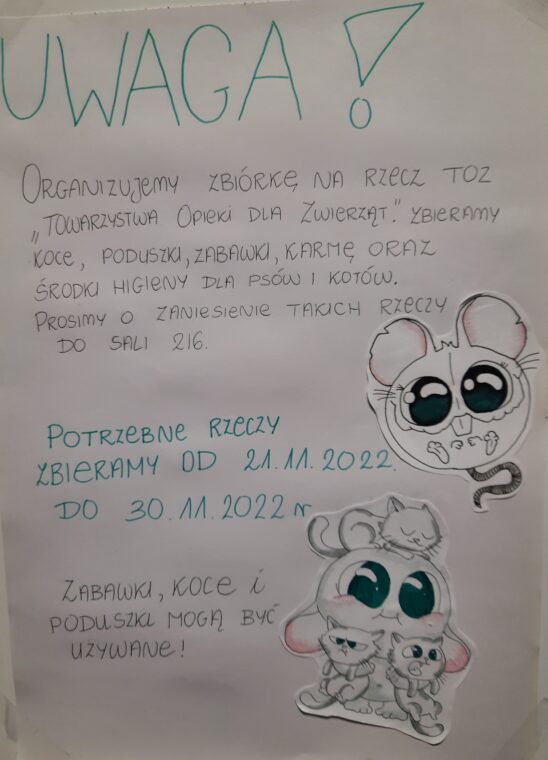 UWAGA!
ORGANIZUJEMY ZBIÓRKĘ NA RZECZ TOZ
„TOWARZYSTWA OPIEKI DLA ZWIERZĄT." ZBIERAMY
KOCE, PODUSZKI, ZABAWKI, KARMĘ ORAZ
ŚRODKI HIGIENY DLA PSÓW I KOTÓW.
PROSIMY O ZANIESIENIE TAKICH RZECZY
DO SALI 216.
POTRZEBNE RZECZY
ZBIERAMY OD 21.11.2022.
DO 30.11.2022 r
ZABAWKI, KOCE i
PODUSZKI MOGĄ BYĆ
UŻYWANE!